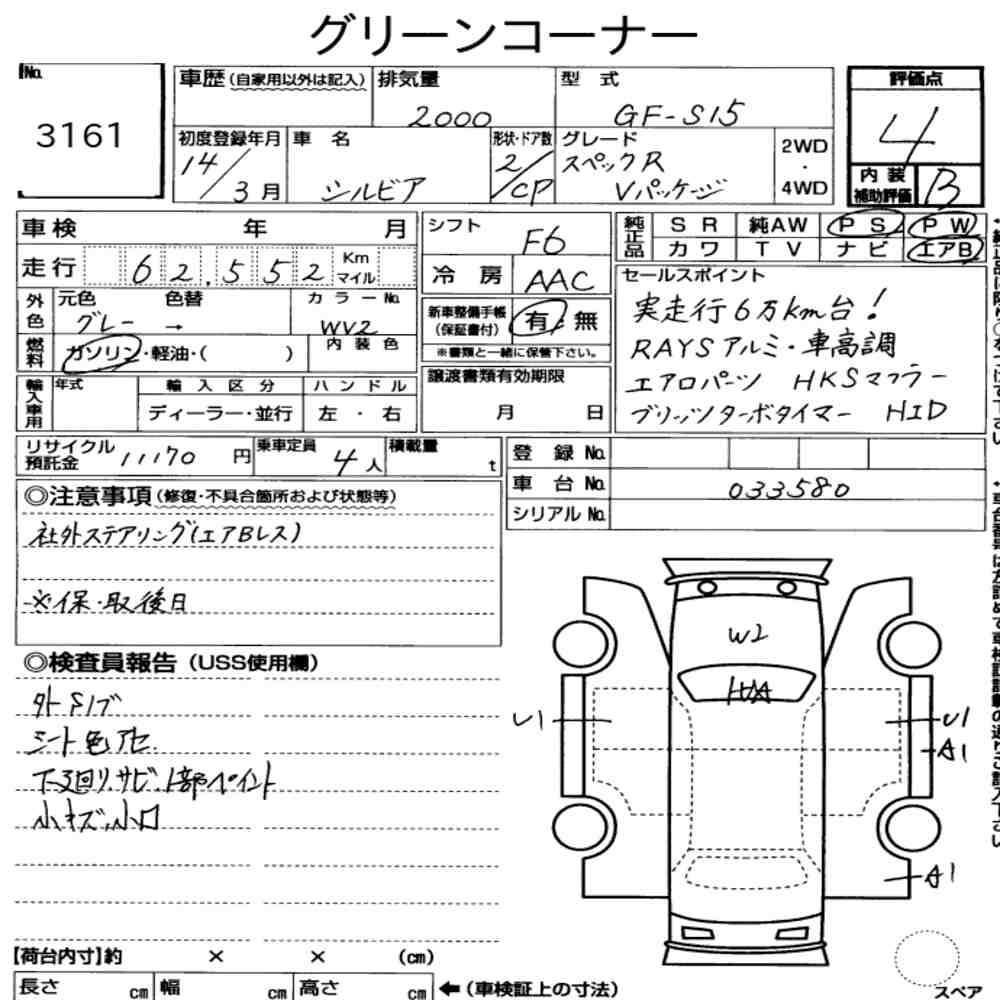 グリーンコーナー
No.
3161
車歴(自家用以外は記入)
排気量
2000
型 式
GF-S15
評価点
4
初度登録年月
14/3月
車 名
シルビア
形状・ドア数
2/CP
グレード
スペックR
Vパッケージ
2WD
・
4WD
内 装
補助評価
B
車検 年 月
シフト
F6
純正品
SR 純AW PS PW
カワ TV ナビ エアB
走行 62,552 Km
マイル
冷 房
AAC
セールスポイント
実走行6万km台!
RAYSアルミ・車高調
エアロパーツ HKSマフラー
ブリッツターボタイマー HID
外色
元色 色替
グレー →
カラーNo.
WV2
新車整備手帳
(保証書付)
有・無
※書類と一緒に保管下さい。
燃料
ガソリン・軽油・( )
内 装 色
輸入車用
年式
輸 入 区 分
ハ ン ド ル
ディーラー・並行
左 ・ 右
譲渡書類有効期限
月 日
リサイクル
預託金
11170 円
乗車定員
4人
積載量
t
登 録 No.
車 台 No.
033580
シリアル No.
◎注意事項(修復・不具合箇所および状態等)
社外ステアリング(エアBレス)
※保・取後日
◎検査員報告(USS使用欄)
外 Sノブ
シート色アセ
下廻りサビ、1部ペイント
小キズ、小凹
W2
U1
U1
A1
A1
スペア
【荷台内寸】約 × × (cm)
長さ cm 幅 cm 高さ cm ←(車検証上の寸法)